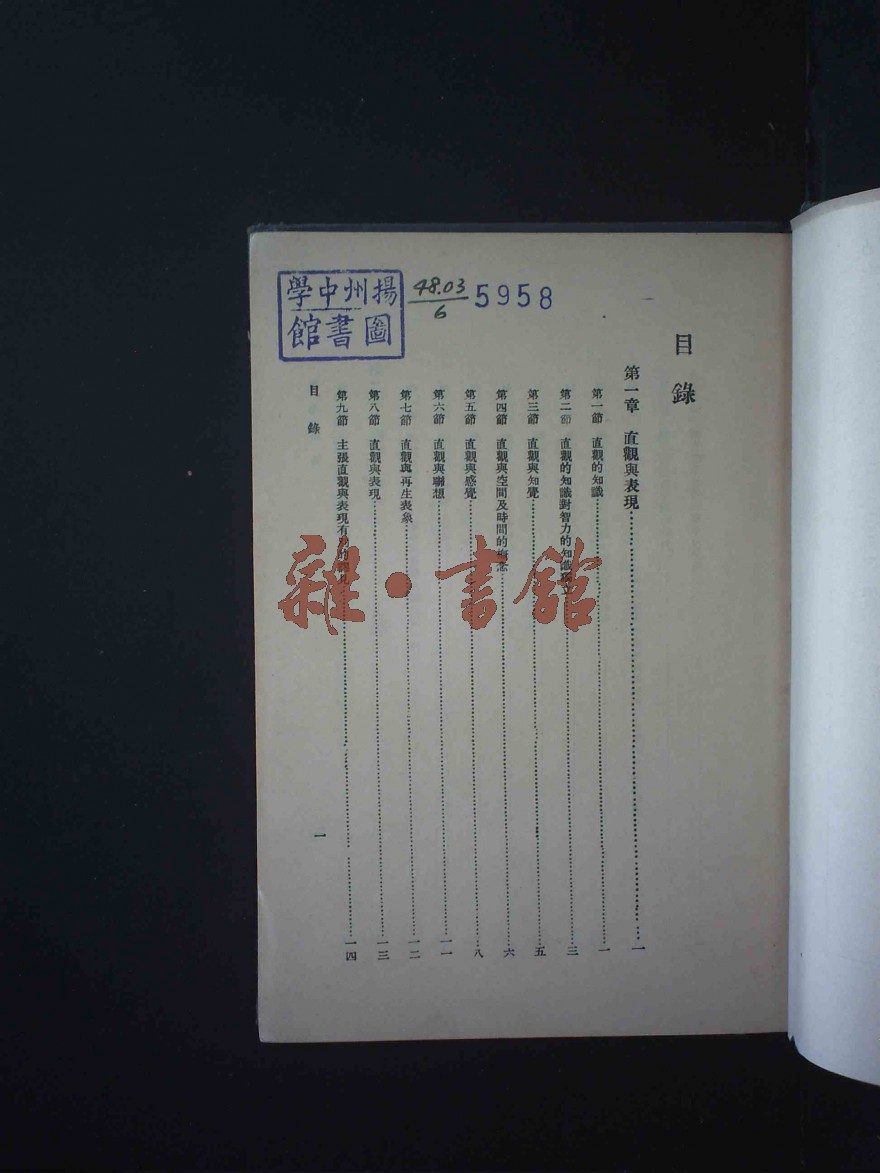 揚州中學
圖書館
48.03
6
5958
目錄
第一章 直觀與表現……一
第一節 直觀的知識……一
第二節 直觀的知識對智力的知識獨立……三
第三節 直觀與知覺……五
第四節 直觀與空間及時間的概念……六
第五節 直觀與感覺……八
第六節 直觀與聯想……一一
第七節 直觀與再生表象……一二
第八節 直觀與表現……一三
第九節 主張直觀與表現有……一四
目錄
一
雜·書館